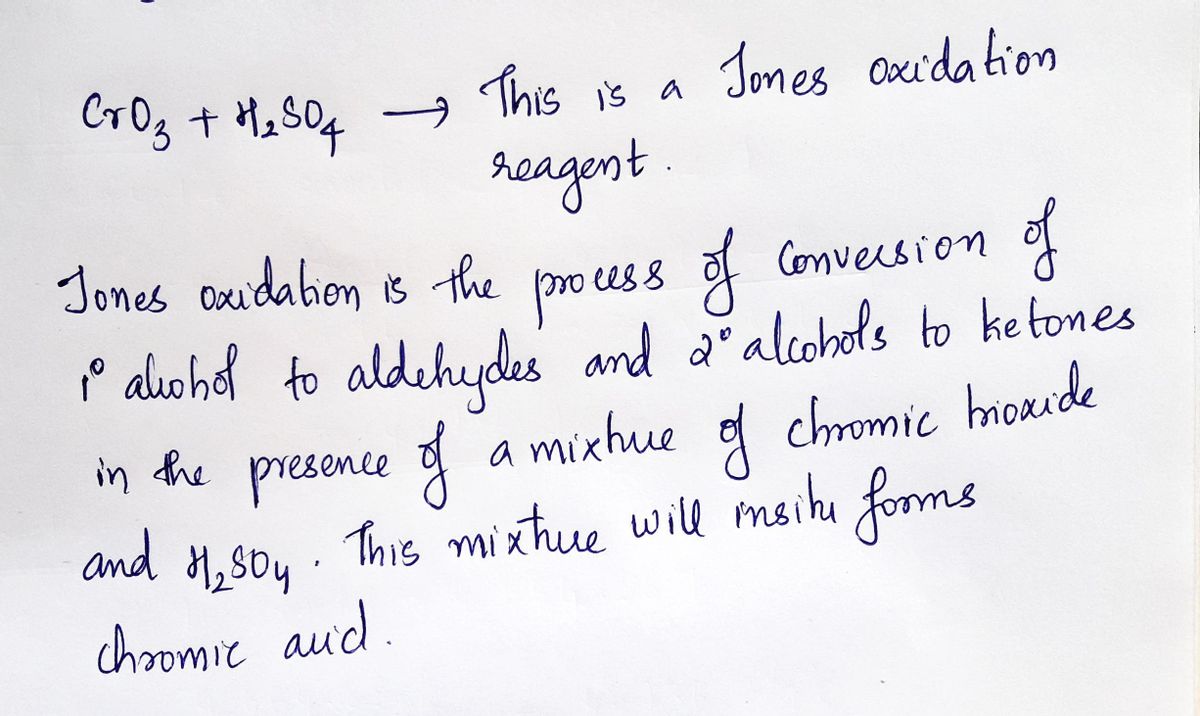 CrO3 + H2SO4 → This is a Jones oxidation
reagent.
Jones oxidation is the process of conversion of
1° alcohol to aldehydes and 2° alcohols to ketones
in the presence of a mixture of chromic trioxide
and H2SO4. This mixture will insitu forms
chromic acid.